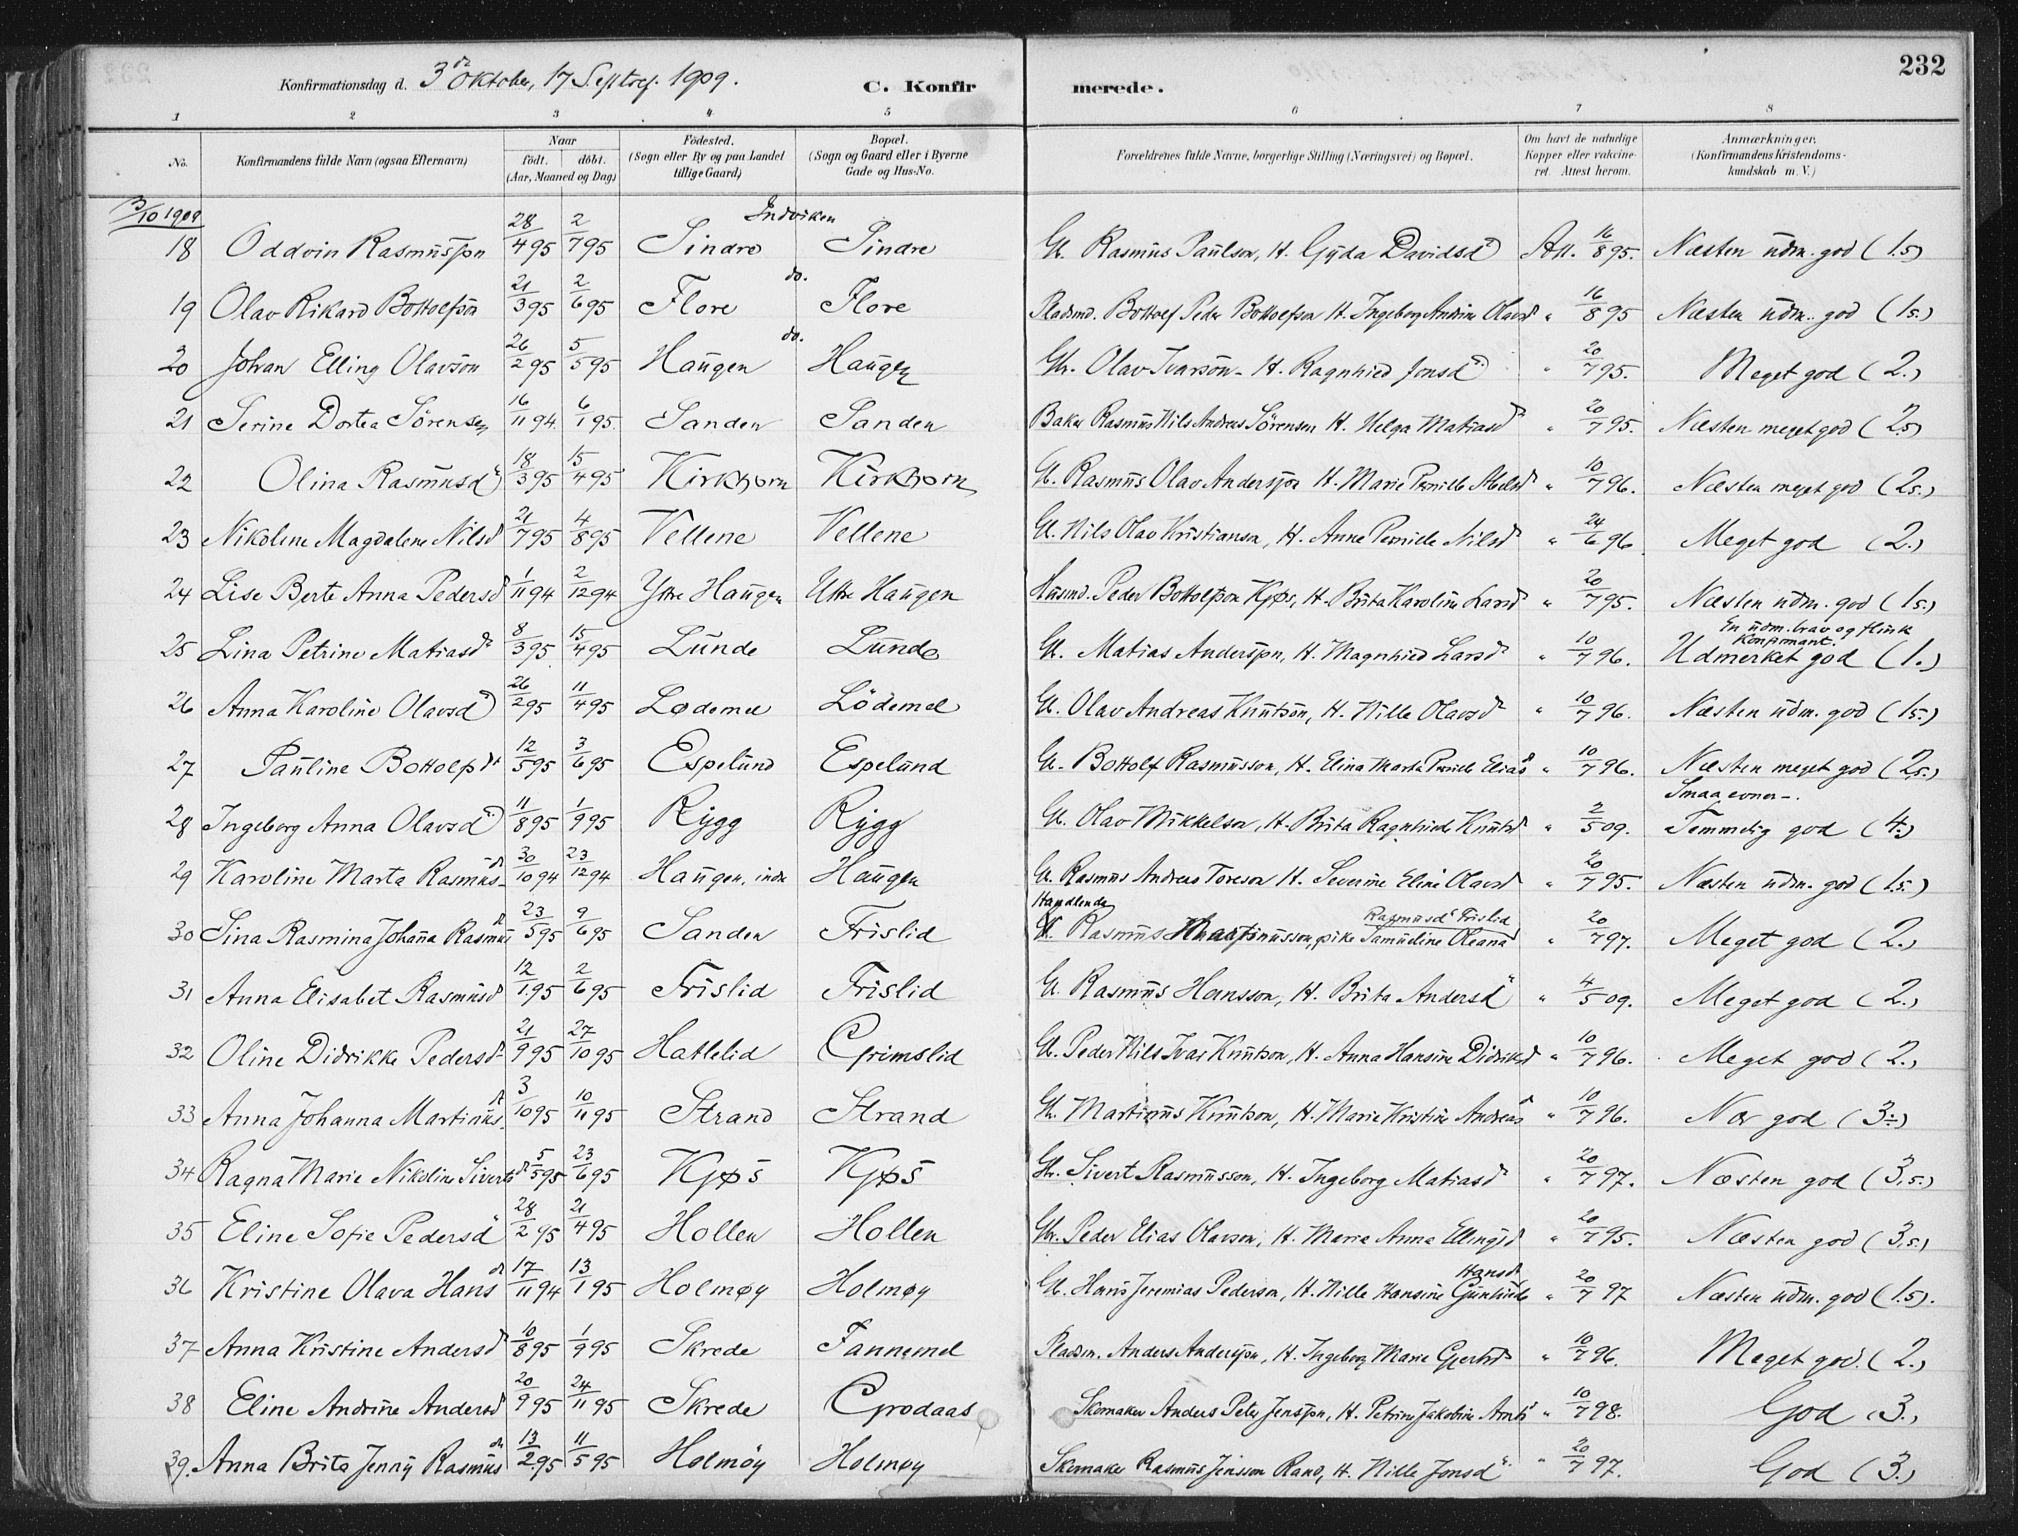 232
Konfirmationsdag d. 3de Oktober, 17 Septbr. 1909.
C. Konfirmerede.
1 2 3 4 5 6 7 8
No. Konfirmandens fulde Navn (ogsaa Efternavn) Naar født. døbt. (Aar, Maaned og Dag) Fødested. (Sogn eller By og paa Landet tillige Gaard) Bopæl. (Sogn og Gaard eller i Byerne Gade og Hus-No. Forældrenes fulde Navne, borgerlige Stilling (Næringsvei) og Bopæl. Om havt de naturlige Kopper eller vakcineret. Attest herom. Anmærkninger. (Konfirmandens Kristendomskundskab m. V.)
3/10 1909 Indviken
18 Oddvin Rasmusson 28/4 95 2/7 95 Sindre Sindre G. Rasmus Paulson, H. Gyda Davidsd. Att. 16/8 95. Næsten udm. god (1.5)
do.
19 Olav Rikard Bottolfson 21/3 95 2/6 95 Flore Flore Pladsmd. Bottolf Peder Bottolfson H. Ingeborg Andrine Olavsd " 16/8 95 Næsten udm. god (1.5.)
do.
20 Johan Elling Olavson 26/2 95 5/5 95 Haugen Haugen Gbr. Olav Ivarson - H. Ragnhied Jonsd " 20/7 95. Meget god (2.)
21 Serine Dortea Sørensen 16/11 94 6/1 95. Sanden Sanden Baker Rasmus Nils Andreas Sörensen H. Helga Matiasd " 20/7 95. Næsten meget god (2.5)
22 Olina Rasmusd 18/3 95 15/4 95 Kirkhorn Kirkhorn G. Rasmus Olav Andersson H. Marie Pernille Abelsd " 10/7 96. Næsten meget god (2.5.)
23 Nikoline Magdalene Nilsd 21/7 95 4/8 95 Vellene Vellene G. Nils Olav Kristianson, H. Anne Pernille Nilsd " 24/6 96. Meget god (2.)
24 Lise Berte Anna Pedersd 1/11 94 2/12 94 Ytre Haugen Ytre Haugen Husmd. Peder Bottolfson Kjøs, H. Brita Karoline Larsd " 20/7 95. Næsten udm. god (1.5.)
En udm. brav og flink Konfirmant.
25 Lina Petrine Matiasd 8/3 95 15/4 95 Lunde Lunde G. Matias Andersson, H. Magnhied Larsd " 10/7 96. Udmerket god (1.)
26 Anna Karoline Olavsd 26/2 95 11/4 95 Lødemel Lödemel G. Olav Andreas Knutson, H. Nille Olavsd " 10/7 96. Næsten udm. god (1.5.)
27 Pauline Bottolfsdt 12/5 95 3/6 95 Espelund Espelund G. Bottolf Rasmusson, H. Elina Marta Pernille Eliasd " 10/7 96. Næsten meget god (2.5.)
Smaa evner -.
28 Ingeborg Anna Olavsd 11/8 95 1/9 95 Rygg Rygg G. Olav Mikkelson, H. Brita Ragnhilde Knutsd " 2/5 09. Temmelig god (4.)
29 Karoline Marta Rasmusd 30/10 94 23/12 94 Haugen, indre Haugen G. Rasmus Andreas Toreson H. Severine Eline Olavsd " 20/7 95. Næsten udm. god (1.5.)
Handlende Rasmusd Frislid
30 Sina Rasmina Johana Rasmusd 23/5 95 9/6 95 Sanden Frislid Rasmus Martinusson, pike Samueline Oleana " 20/7 97. Meget god (2.)
31 Anna Elisabet Rasmusd 12/1 95 2/6 95 Frislid Frislid G. Rasmus Hansson, H. Brita Andersd " 4/5 09. Meget god (2.)
32 Oline Didrikke Pedersd 21/9 95 27/10 95 Hatlelid Grimslid G. Peder Nils Ivar Knutson, H. Anna Hansine Didriksd " 10/7 96. Meget god (2.)
33 Anna Johanna Martinusd 3/10 95 10/11 95 Strand Strand G. Martinus Knutson, H. Marie Kristine Andreasd " 10/7 96. Nær god (3÷)
34 Ragna Marie Nikoline Sivertsd 5/5 95 23/6 95 Kjøs Kjøs Gbr. Sivert Rasmusson, H. Ingeborg Matiasd " 20/7 97. Næsten god (3.5.)
35 Eline Sofie Pedersd 28/2 95 21/4 95 Hollen Hollen Gbr. Peder Elias Olavson, H. Maria Anna Ellingsd " 20/7 95. Næsten god (3.5.)
Hansd
36 Kristine Olava Hansd 17/11 94 13/1 95 Holmøy Holmøy G. Hans Jeremias Pederson, H. Nille Hansine Gunhilde " 20/7 97 Næsten udm. god (1.5).
37 Anna Kristine Andersd 10/8 95 1/9 95 Skrede Fannemel Pladsm. Anders Andersson, H. Ingeborg Marie Gjertsd " 10/7 96. Meget god. (2.)
38 Eline Andrine Andersd 20/9 95 24/11 95 Skrede Grodaas Skomaker Anders Peter Jensson, H. Petrine Jakobine Arntsd " 10/7 98. God (3.)
39. Anna Brita Jenny Rasmusd 13/2 95 11/5 95 Holmöy Holmøy Skomaker Rasmus Jensson Rand, H. Nille Jonsd " 20/7 97. God (3.)